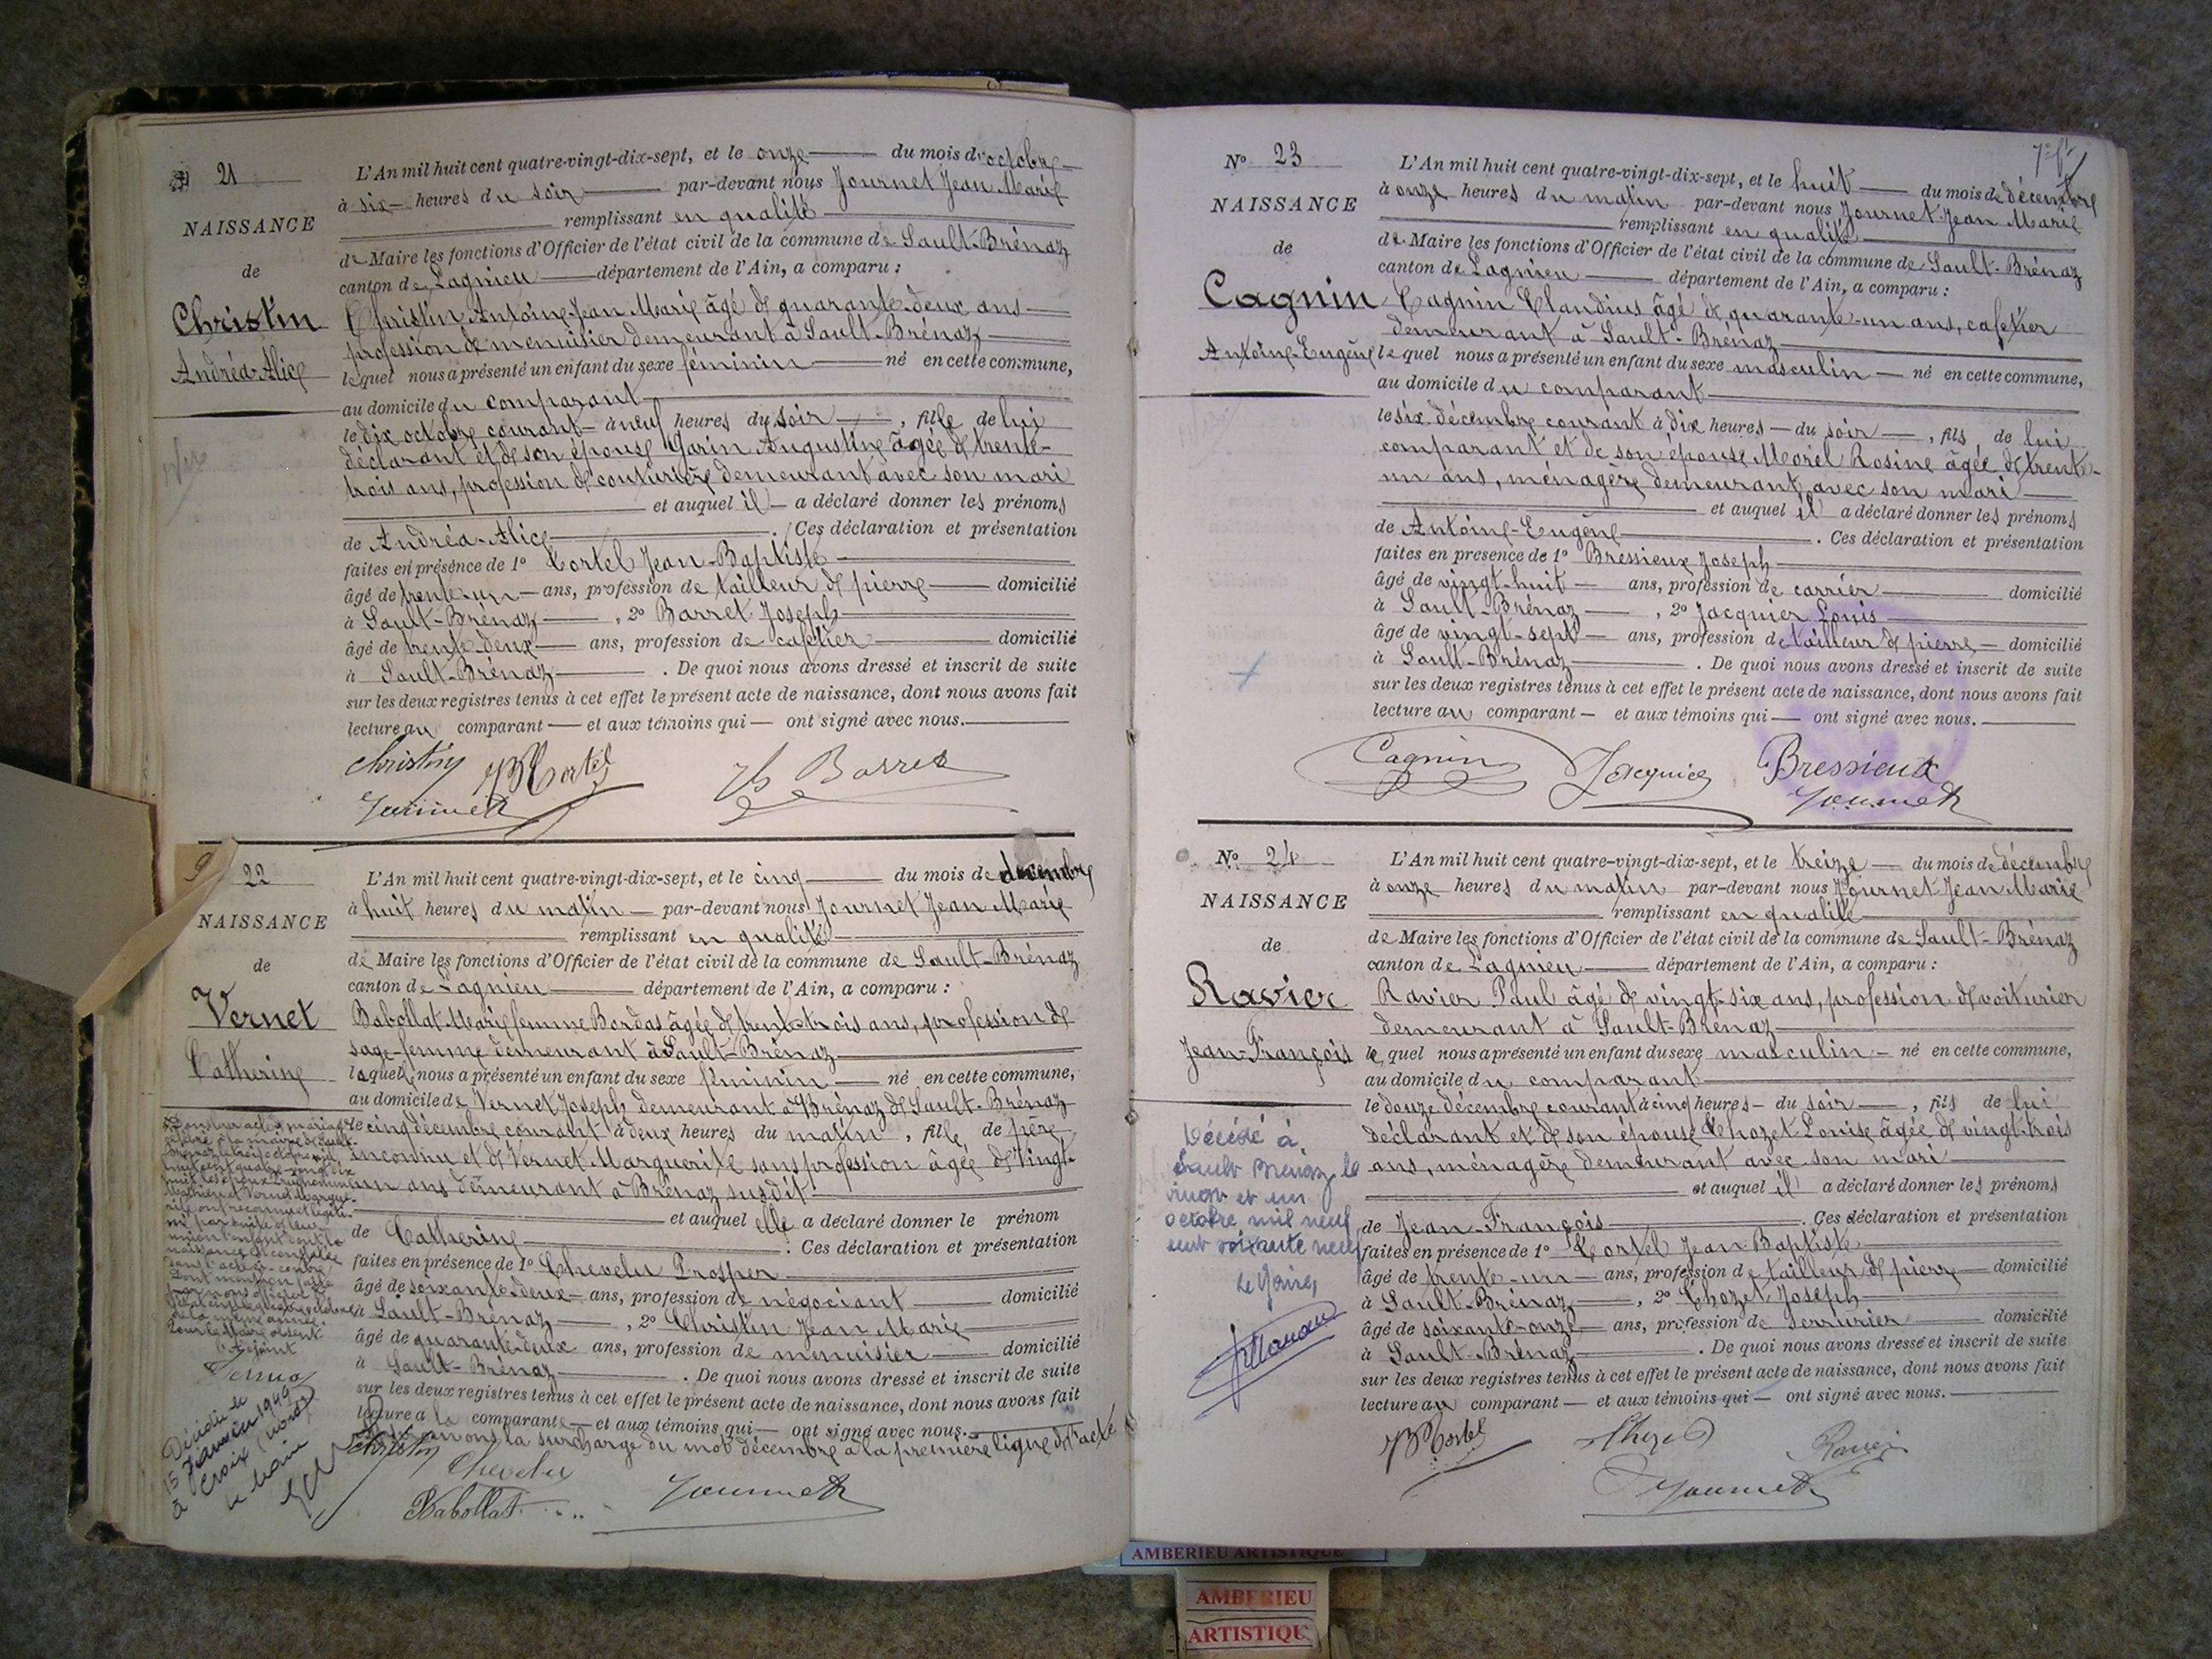 21
NAISSANCE
de
Christin
Andréa-Alice
L'An mil huit cent quatre-vingt-dix-sept, et le onze du mois d'octobre
à six heures du soir par-devant nous Journet Jean Marie
remplissant en qualité
de Maire les fonctions d'Officier de l'état civil de la commune de Sault-Brénaz
canton de Lagnieu département de l'Ain, a comparu :
Christin Antoine-Jean Marie âgé de quarante-deux ans
profession de menuisier demeurant à Sault-Brénaz
lequel nous a présenté un enfant du sexe féminin né en cette commune,
au domicile du comparant
le dix octobre courant à neuf heures du soir, fille de lui
déclarant et de son épouse Augustine âgée de trente-
trois ans, profession de couturière demeurant avec son mari
et auquel il a déclaré donner les prénoms
de Andréa-Alice. Ces déclaration et présentation
faites en présence de 1° Cortel Jean-Baptiste
âgé de trente-un ans, profession de tailleur de pierre domicilié
à Sault-Brénaz, 2° Barret Joseph
âgé de trente-deux ans, profession de cafetier domicilié
à Sault-Brénaz. De quoi nous avons dressé et inscrit de suite
sur les deux registres tenus à cet effet le présent acte de naissance, dont nous avons fait
lecture au comparant et aux témoins qui ont signé avec nous.
Christin JB Cortel Jh Barret
Journet
9
22
NAISSANCE
de
Vernet
Catherine
L'An mil huit cent quatre-vingt-dix-sept, et le cinq du mois de décembre
à huit heures du matin par-devant nous Journet Jean Marie
remplissant en qualité
de Maire les fonctions d'Officier de l'état civil de la commune de Sault-Brénaz
canton de Lagnieu département de l'Ain, a comparu :
Babollat Marie femme Bordas âgée de trente-trois ans, profession de
sage-femme demeurant à Sault-Brénaz
laquelle nous a présenté un enfant du sexe féminin né en cette commune,
au domicile de Vernet Joseph demeurant à Brénaz de Sault-Brénaz
le cinq décembre courant à deux heures du matin, fille de père
inconnu et de Vernet Marguerite sans profession âgée de vingt-
un ans demeurant à Brénaz susdit
et auquel elle a déclaré donner le prénom
de Catherine. Ces déclaration et présentation
faites en présence de 1° Chevelu Prosper
âgé de soixante-deux ans, profession de négociant domicilié
à Sault-Brénaz, 2° Christin Jean Marie
âgé de quarante-deux ans, profession de menuisier domicilié
à Sault-Brénaz. De quoi nous avons dressé et inscrit de suite
sur les deux registres tenus à cet effet le présent acte de naissance, dont nous avons fait
lecture à la comparante et aux témoins qui ont signé avec nous.
la surcharge du mot décembre à la première ligne de l'acte
Christin Chevelu
Babollat Journet
union l'enfant dont la
naissance est constatée
dans l'acte ci-contre
Dont mention faite
par nous officier de
de la même année.
Pour le Maire absent
l'Adjoint
Décédée le
15 Janvier 1949
à Croix (Nord)
le Maire
7e ft
N° 23
NAISSANCE
de
Cagnin
Antoine-Eugène
L'An mil huit cent quatre-vingt-dix-sept, et le huit du mois de décembre
à onze heures du matin par-devant nous Journet Jean Marie
remplissant en qualité
de Maire les fonctions d'Officier de l'état civil de la commune de Sault-Brénaz
canton de Lagnieu département de l'Ain, a comparu :
Cagnin Claudius âgé de quarante-un ans, cafetier
demeurant à Sault-Brénaz
lequel nous a présenté un enfant du sexe masculin né en cette commune,
au domicile du comparant
le six décembre courant à dix heures du soir, fils de lui
comparant et de son épouse Morel Rosine âgée de trente-
un ans, ménagère demeurant avec son mari
et auquel il a déclaré donner les prénoms
de Antoine-Eugène. Ces déclaration et présentation
faites en présence de 1° Bressieux Joseph
âgé de vingt-huit ans, profession de carrier domicilié
à Sault-Brénaz, 2° Jacquier Louis
âgé de vingt-sept ans, profession de tailleur de pierre domicilié
à Sault-Brénaz. De quoi nous avons dressé et inscrit de suite
sur les deux registres tenus à cet effet le présent acte de naissance, dont nous avons fait
lecture au comparant et aux témoins qui ont signé avec nous.
Cagnin Jacquier Bressieux
Journet
N° 24
NAISSANCE
de
Ravier
Jean-François
L'An mil huit cent quatre-vingt-dix-sept, et le treize du mois de décembre
à onze heures du matin par-devant nous Journet Jean Marie
remplissant en qualité
de Maire les fonctions d'Officier de l'état civil de la commune de Sault-Brénaz
canton de Lagnieu département de l'Ain, a comparu :
Ravier Paul âgé de vingt-six ans, profession de voiturier
demeurant à Sault-Brénaz
lequel nous a présenté un enfant du sexe masculin né en cette commune,
au domicile du comparant
le douze décembre courant à cinq heures du soir, fils de lui
déclarant et de son épouse Chozet Louise âgée de vingt-trois
ans, ménagère demeurant avec son mari
et auquel il a déclaré donner les prénoms
de Jean-François. Ces déclaration et présentation
faites en présence de 1° Cortel Jean Baptiste
âgé de trente-un ans, profession de tailleur de pierre domicilié
à Sault-Brénaz, 2° Chozet Joseph
âgé de soixante-onze ans, profession de serrurier domicilié
à Sault-Brénaz. De quoi nous avons dressé et inscrit de suite
sur les deux registres tenus à cet effet le présent acte de naissance, dont nous avons fait
lecture au comparant et aux témoins qui ont signé avec nous.
JB Cortel Chozet Ravier
Journet
Décédé à
Sault Brénaz, le
vingt et un
octobre mil neuf
cent soixante neuf
Le Maire,
AMBERIEU ARTISTIQUE
AMBERIEU
ARTISTIQU